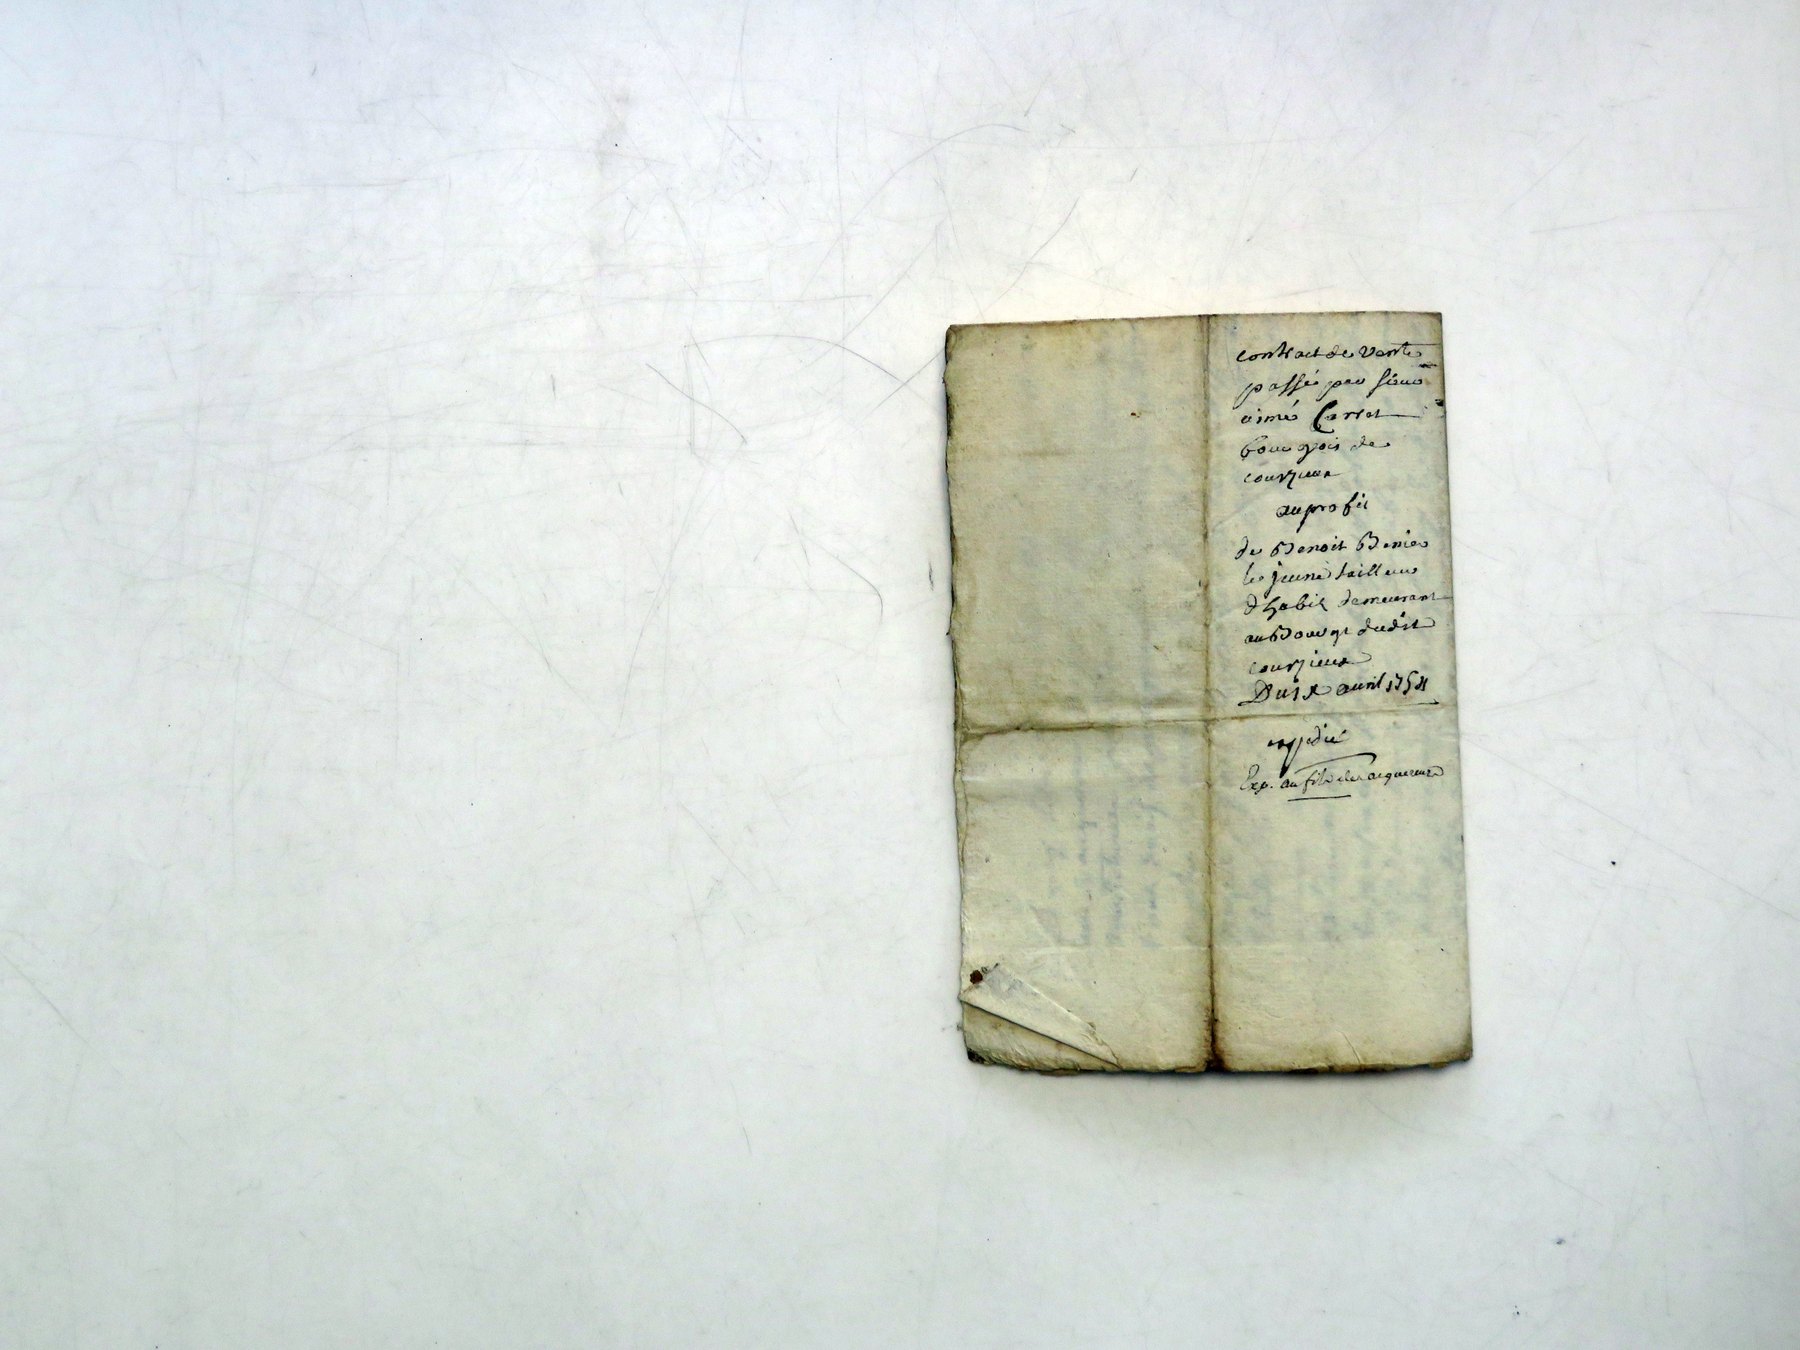 contract de vente
passée par sieur
aimé Carret
bourgois de
courzieux
au profit
de Benoit Benier
le jeune tailleur
d habit demeurant
au Bourgt dudit
courzieux
Du 1x avril 175
expedié
Exp. au fils de acquereur